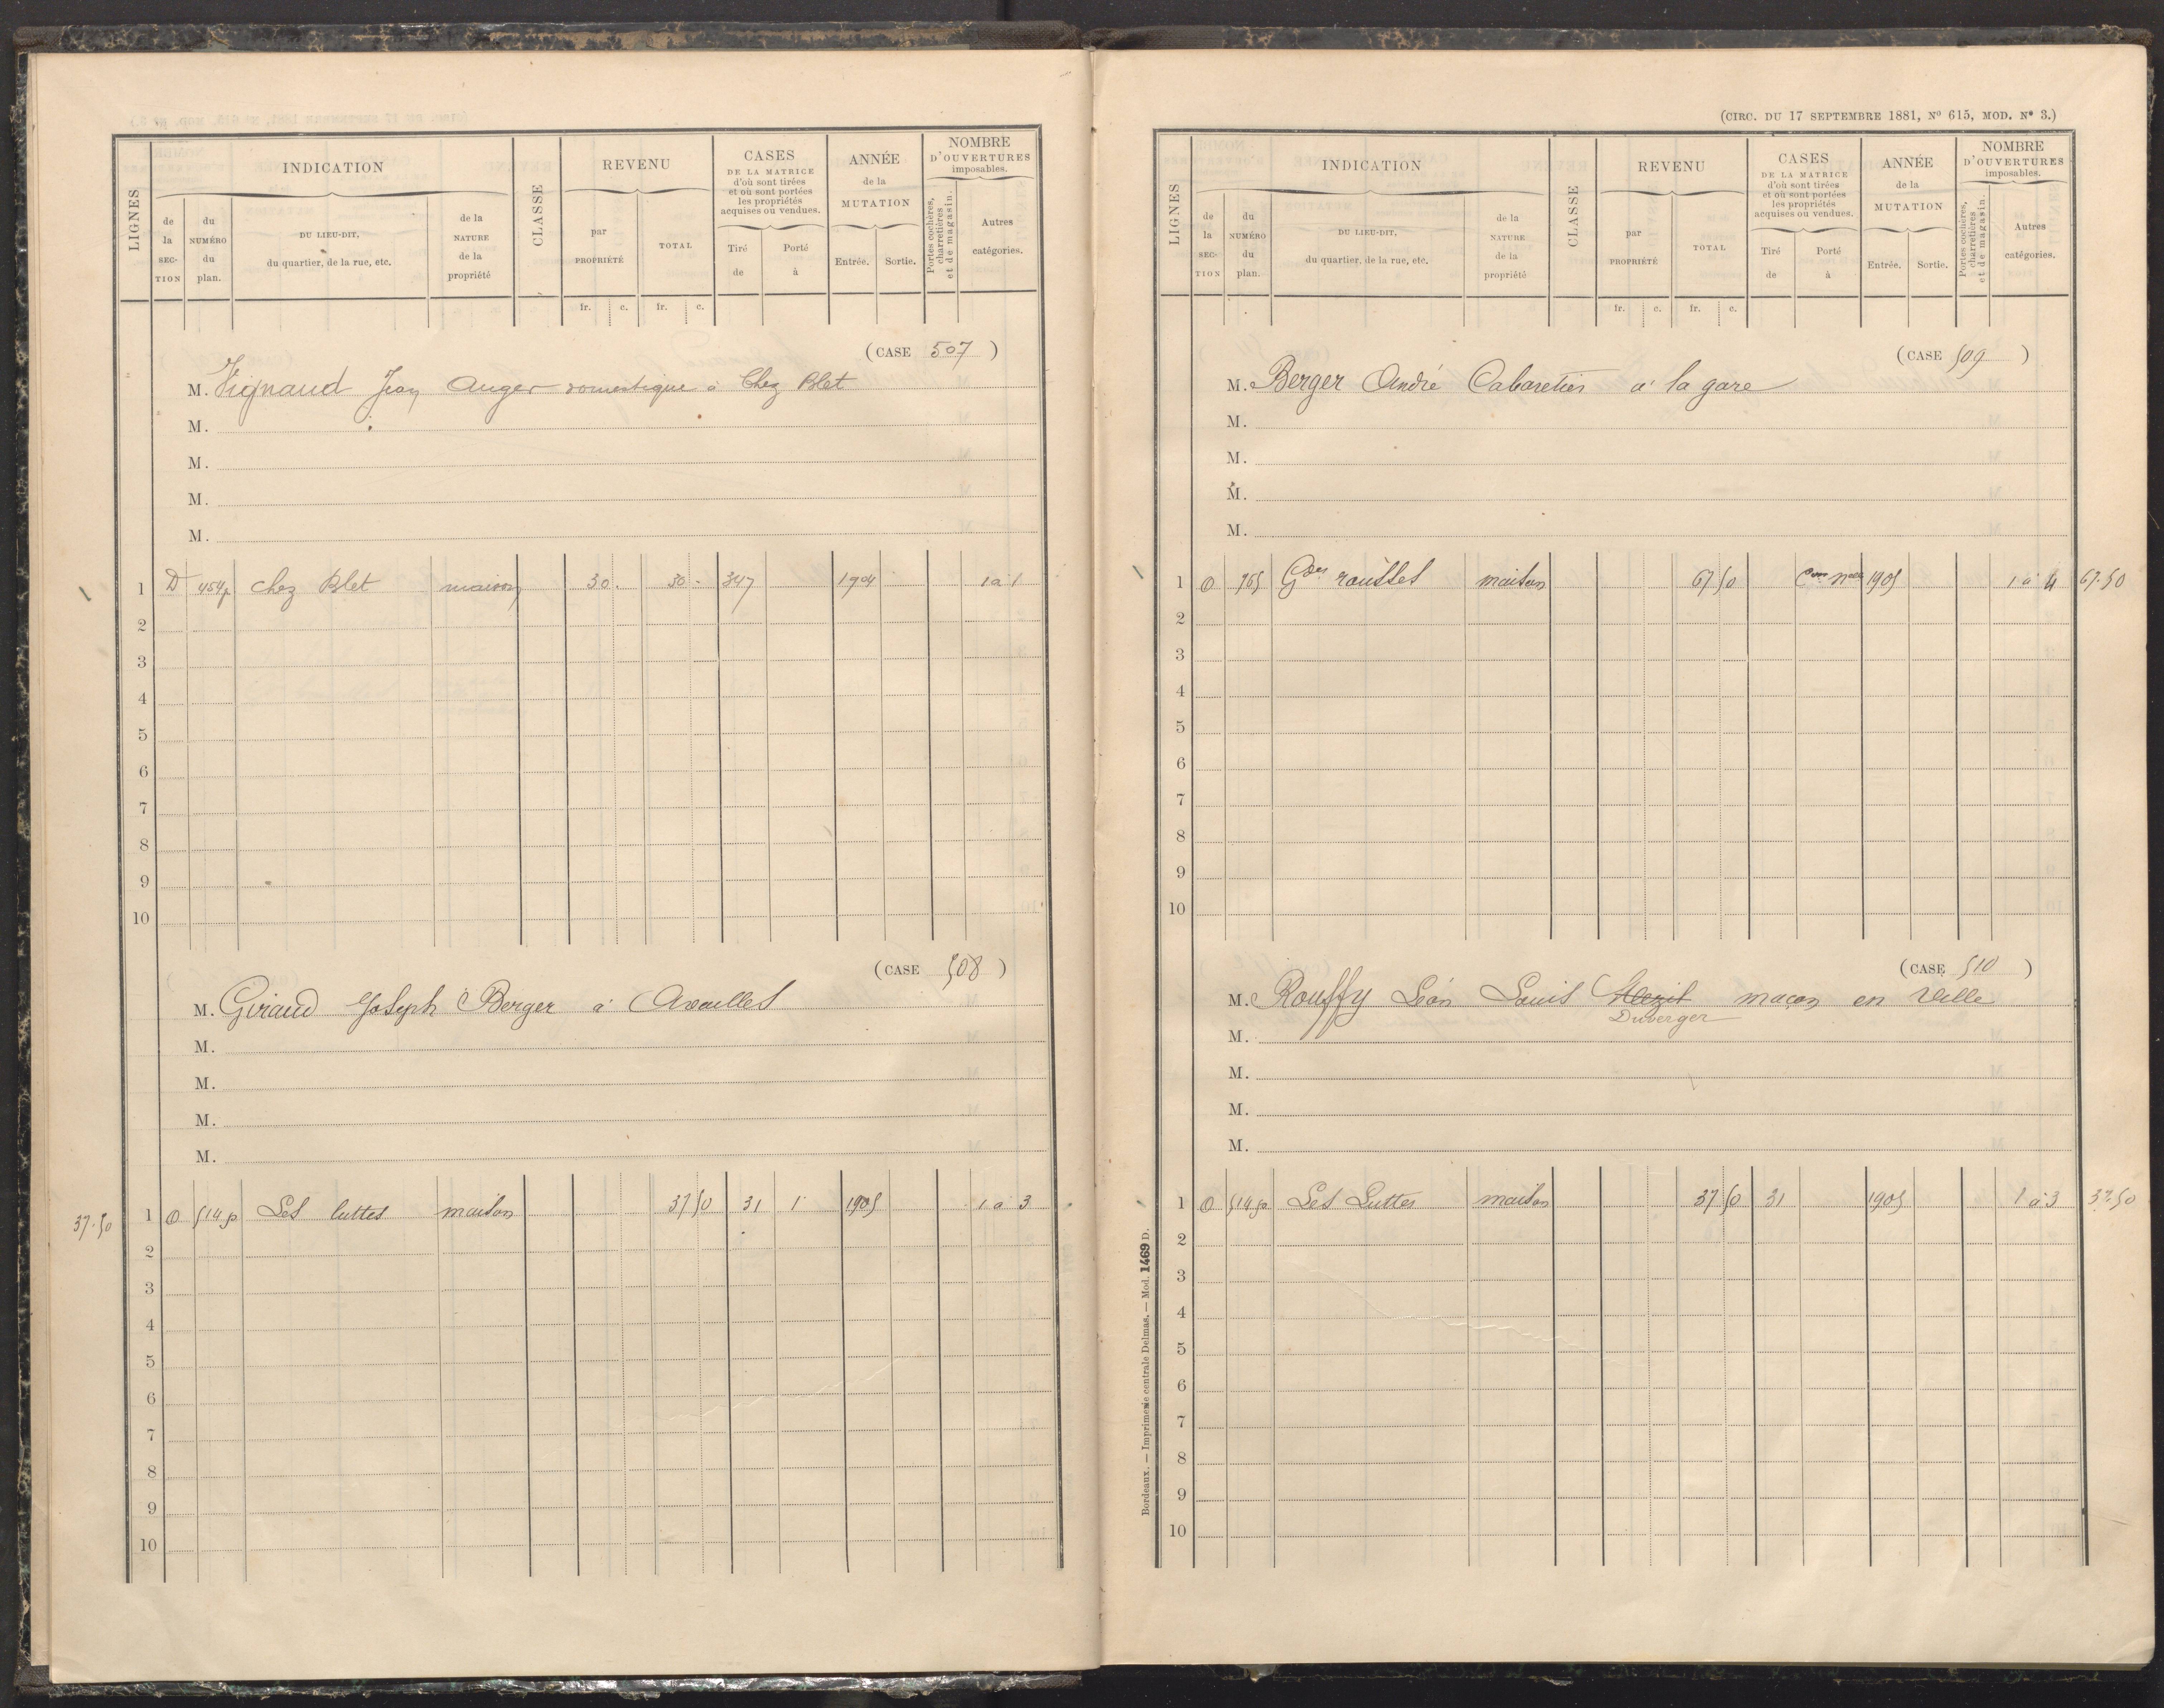 LIGNES
INDICATION
de la SECTION
du NUMÉRO du plan.
DU LIEU-DIT, du quartier, de la rue, etc.
de la NATURE de la propriété
CLASSE
REVENU
par PROPRIÉTÉ
TOTAL
CASES DE LA MATRICE d'où sont tirées et où sont portées les propriétés acquises ou vendues.
Tiré de
Porté à
ANNÉE de la MUTATION
Entrée.
Sortie.
NOMBRE D'OUVERTURES imposables.
Portes cochères, charretières et de magasin.
Autres catégories.
fr. c. fr. c.
(CASE 507)
M. Vignaud Jean Auger domestique à Chez Blet
M.
M.
M.
M.
1 D 454p chez Blet maison 30. 30 - 347 1904 1 à 1
2
3
4
5
6
7
8
9
10
(CASE 508)
M. Giraud Joseph Berger à Availles
M.
M.
M.
M.
37.50 1 O 514p Les luttes maison 37 50 31 1 1905 1 a 3
2
3
4
5
6
7
8
9
10
(CIRC. DU 17 SEPTEMBRE 1881, N° 615, MOD. N° 3.)
LIGNES
INDICATION
de la SECTION
du NUMÉRO du plan.
DU LIEU-DIT, du quartier, de la rue, etc.
de la NATURE de la propriété
CLASSE
REVENU
par PROPRIÉTÉ
TOTAL
CASES DE LA MATRICE d'où sont tirées et où sont portées les propriétés acquises ou vendues.
Tiré de
Porté à
ANNÉE de la MUTATION
Entrée.
Sortie.
NOMBRE D'OUVERTURES imposables.
Portes cochères, charretières et de magasin.
Autres catégories.
fr. c. fr. c.
(CASE 509)
M. Berger André Cabaretier à la gare
M.
M.
M.
M.
1 O 765 Gdes rousses maison 67 50 Con nelle 1905 1 à 4 67.50
2
3
4
5
6
7
8
9
10
(CASE 510)
M. Rouffy Léon Louis maçon en ville
Duverger
M.
M.
M.
M.
1 O 514p Les Luttes maison 37 50 31 1905 1 à 3 37.50
2
3
4
5
6
7
8
9
10
Bordeaux. — Imprimerie centrale Delmas. — Mod. 1469 D.